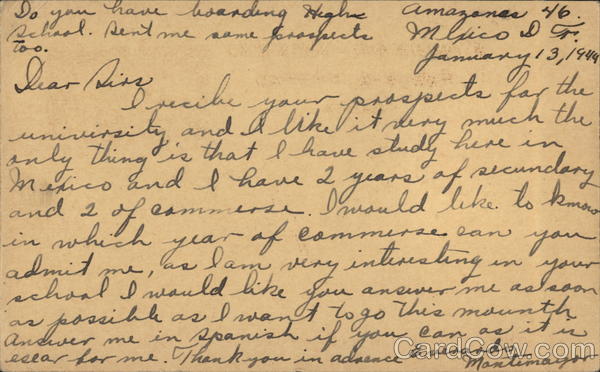 Do you have boarding High
School. Sent me some prospects
too.
Amazonas 46.
Mexico D F.
January 13, 1944
Dear Sirs
I recibe your prospects for the
university and I like it very much the
only thing is that I have study here in
Mexico and I have 2 years of secundary
and 2 of commerse. I would like to know
in which year of commerse can you
admit me, as I am very interesting in your
school I would like you answer me as soon
as possible as I want to go this mounth
Answer me in Spanish if you can as it is
esear for me. Thank you in advence
Montemayor
CardCow.com